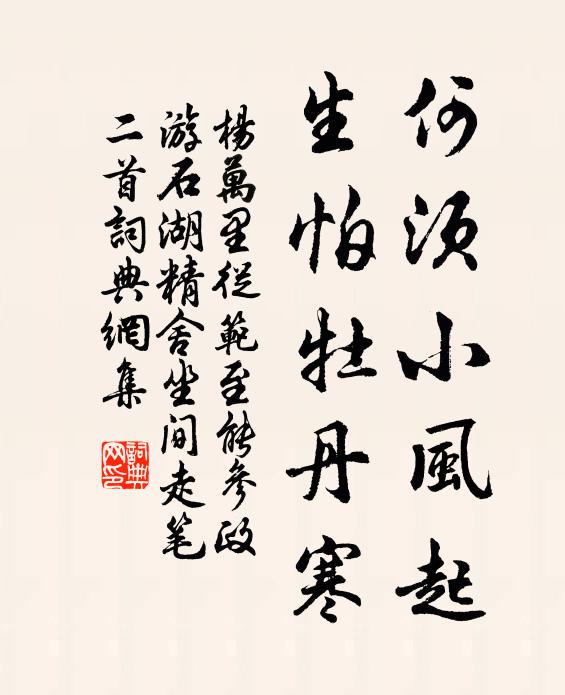 何须小風起
生怕牡丹寒
楊萬里從範至能參政
游石湖精舍坐间走笔
二首詞典網集
詞典网印